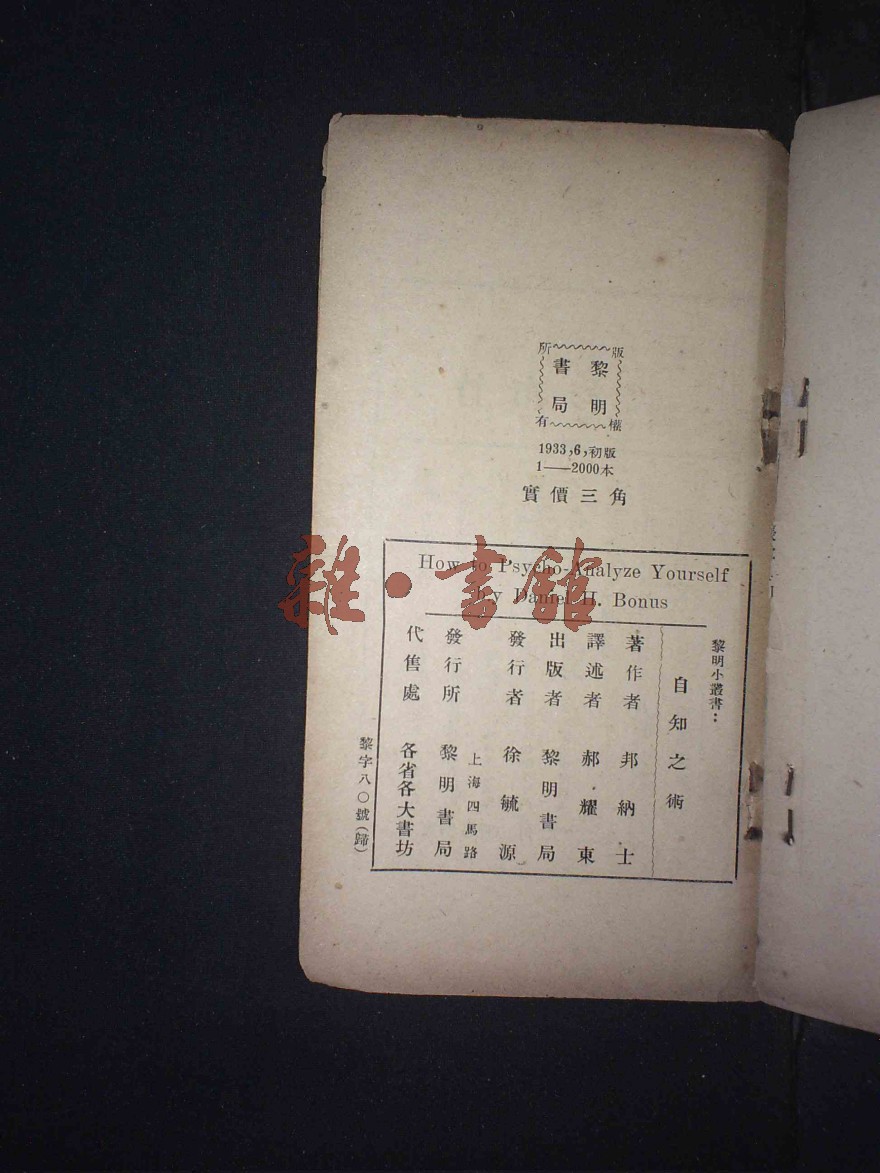 版權所有
黎明
書局
1933,6,初版
1——2000本
實價三角
How to Psycho-Analyze Yourself
by Daniel H. Bonus
黎明小叢書：
自知之術
著作者 邦納士
譯述者 郝耀東
出版者 黎明書局
發行者 徐毓源
上海四馬路
發行所 黎明書局
代售處 各省各大書坊
黎字八〇號(蹄)
雜·書館